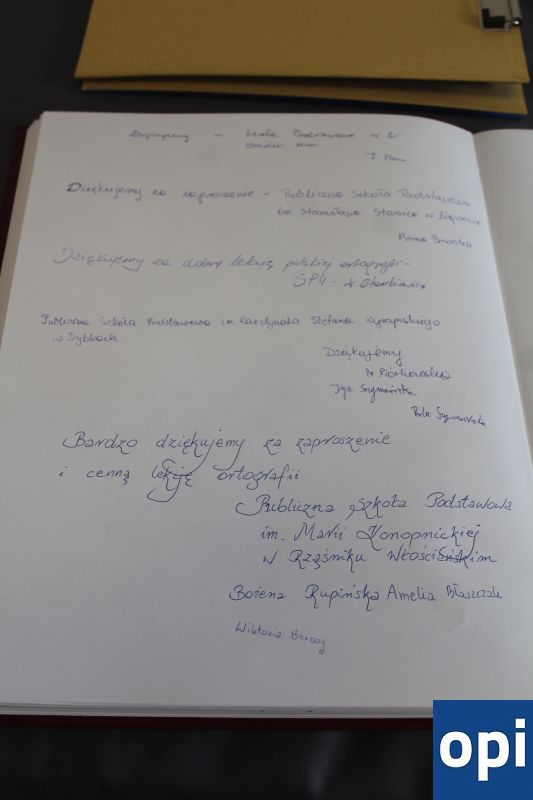 Dziękujemy - Szkoła Podstawowa nr 2
Dziękujemy za zaproszenie - Publiczna Szkoła Podstawowa
im. Stanisława Staszica w
Anna
Dziękujemy za dobrą lekcję polskiej ortografii -
SP4 - Stankiewicz
Publiczna Szkoła Podstawowa im. Kardynała Stefana Wyszyńskiego
w Dybkach
Dziękujemy
Piórkowska
Iga Szymańska
Pola Szymańska
Bardzo dziękujemy za zaproszenie
i cenną lekcję ortografii
Publiczna Szkoła Podstawowa
im. Marii Konopnickiej
w Rząśniku Włościańskim
Bożena Rupińska Amelia Błaszczak
Wiktoria Borowy
opi